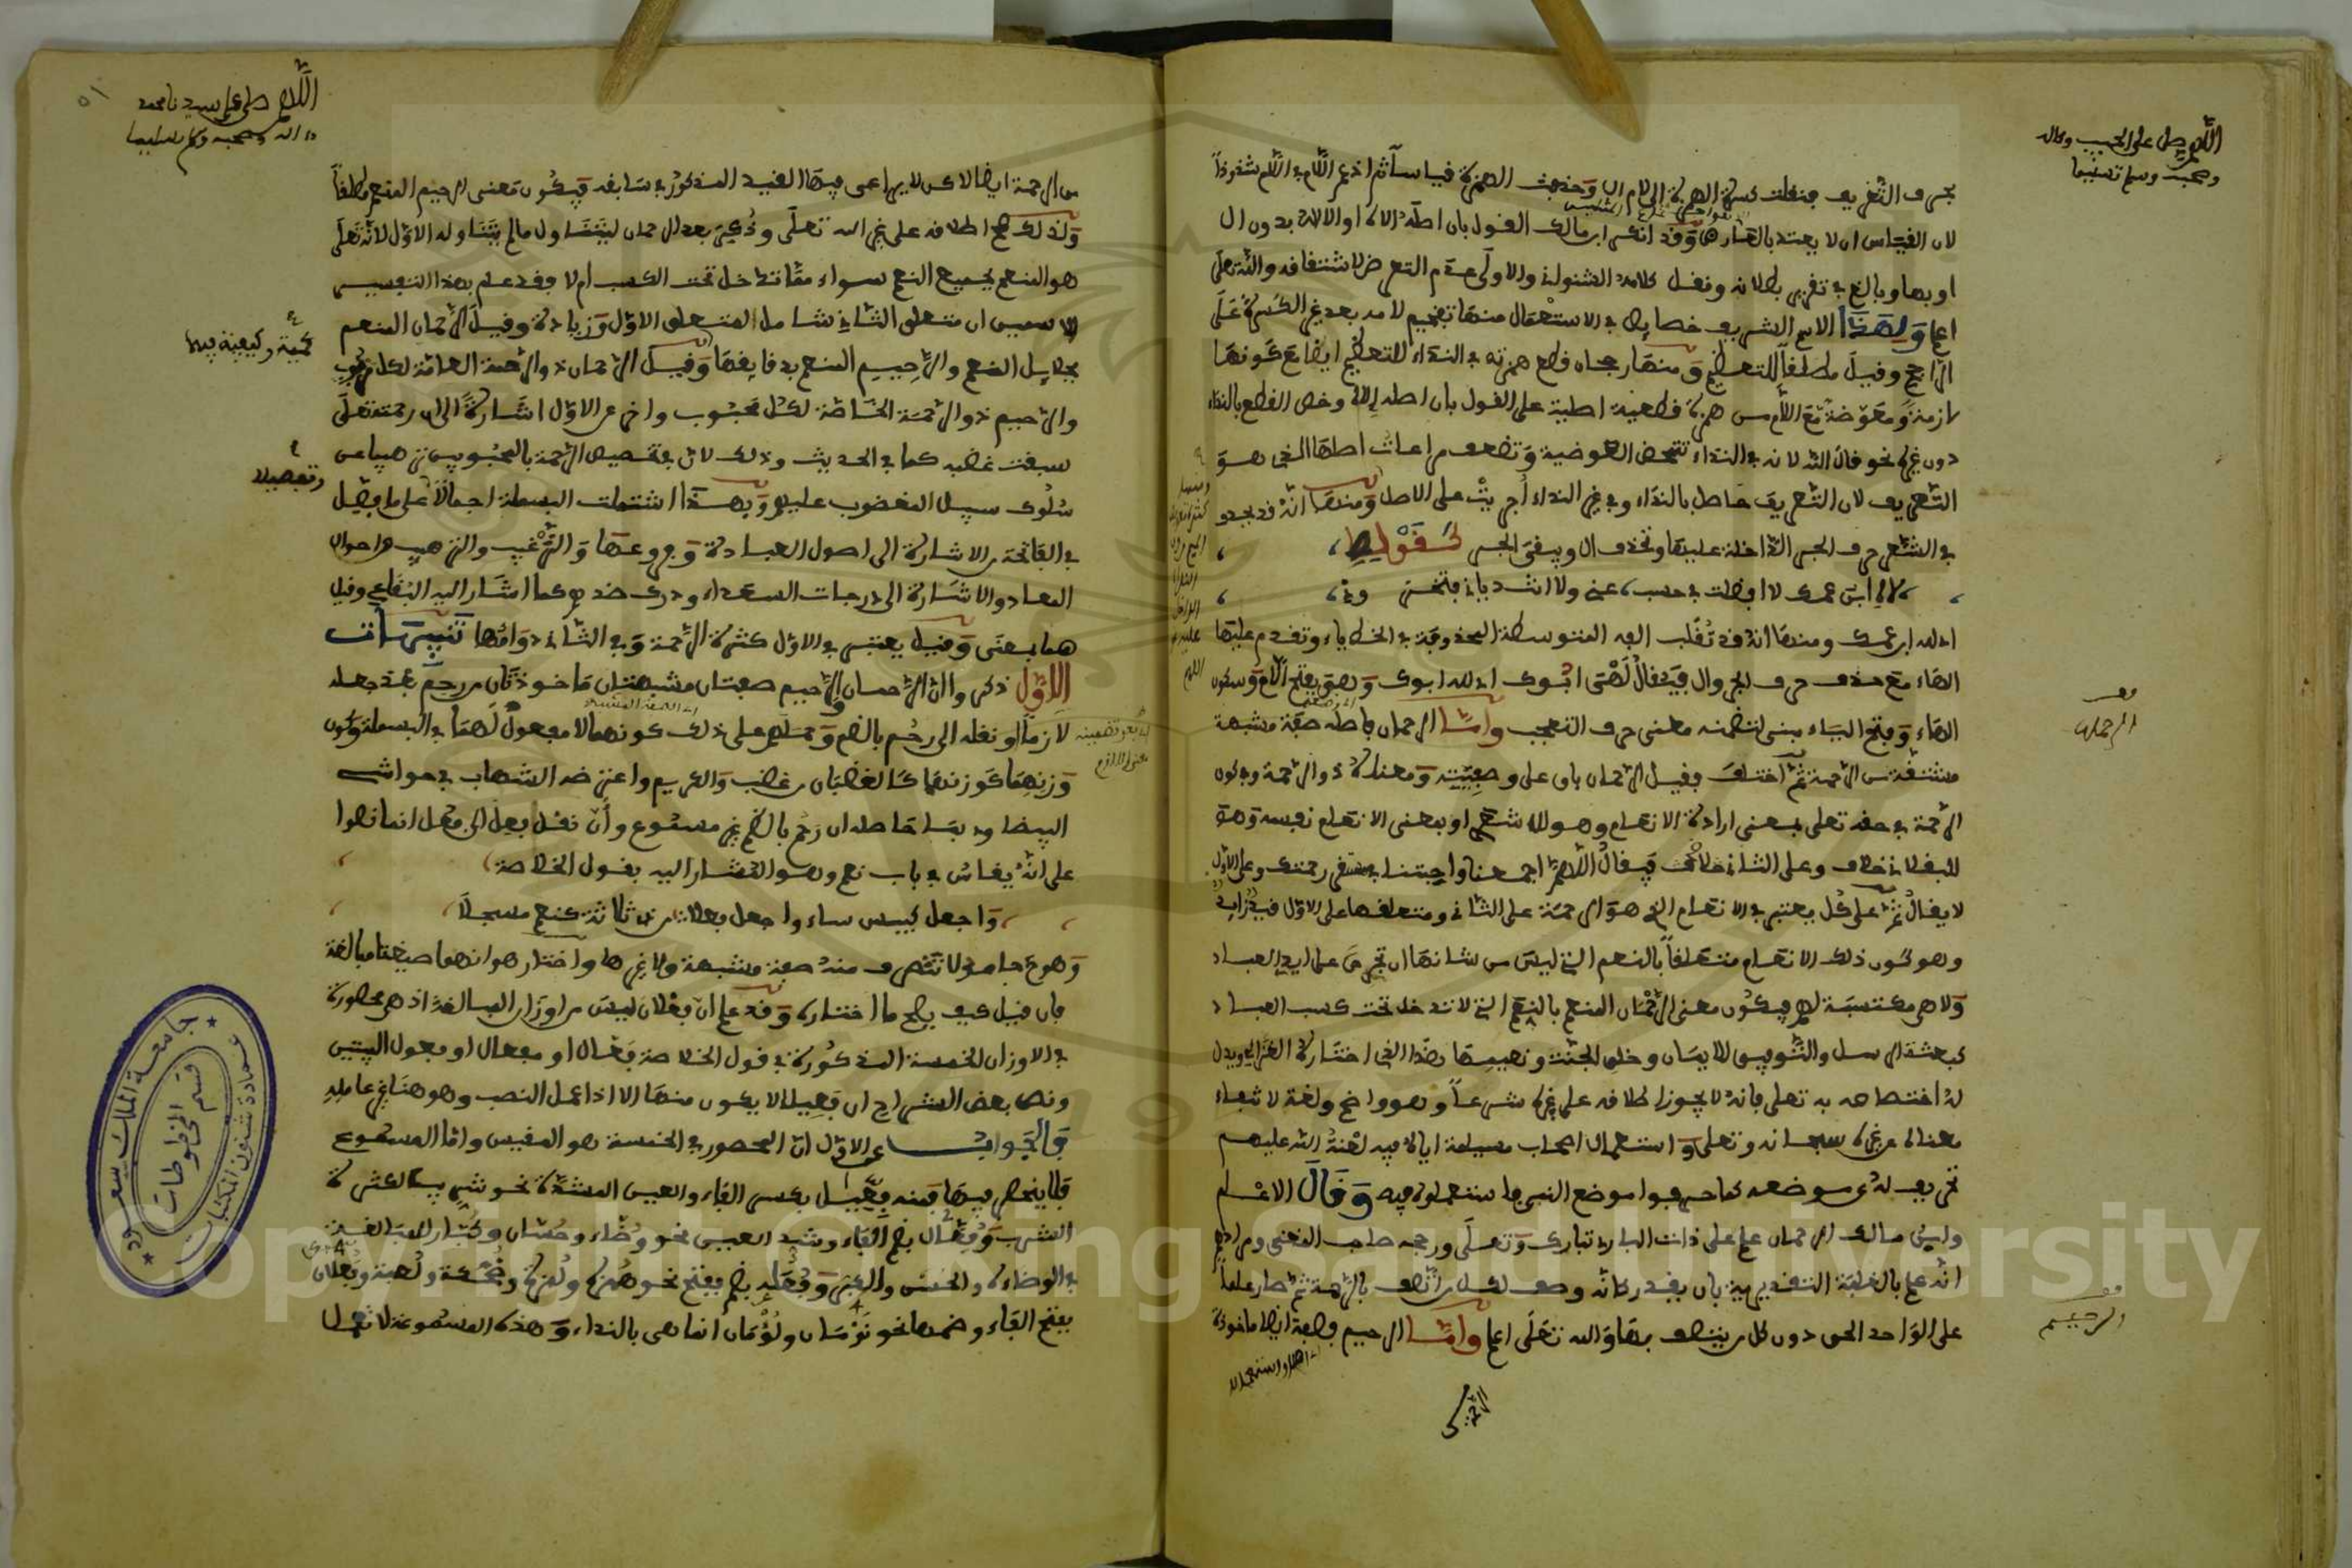 اللهم صل على الحبيب وءاله
وصحبه وسلم تسليما
بحرف التعريف فنقلت كسرة الهمزة إلى لام ال وحذفت الهمزة قياسا ثم ادغم اللام في اللام شذوذا
لان القياس ان لا يعتد بالعارض وقد انكر ابن مالك القول بان اصله الاله او الالاه بدون ال
او بها وبالغ في تقرير بطلانه ونقل كلامه الشنواني والاولى عدم التعرض لاشتقاقه والله تعلى
اعلم ولهذا الاسم الشريف خصايص في الاستعمال منها تفخيم لامه بعد غير الكسرة على
الراجح وقيل مطلقا للتعظيم ومنها رجحان قطع همزته في النداء للتعظيم ايضا مع كونها
لازمة ومعوضة مع اللام من همزة قطعية اصلية على القول بان اصله إلاه وخص القطع بالنداء
دون غيره نحو قال الله لانه في النداء تتمحض العوضية وتضعف مراعات اصلها الذي هو
التعريف لان التعريف حاصل بالنداء وفي غير النداء أجريت على الاصل ومنها انه قد يحذف
في الشعر حرف الجر الداخلة عليها وتحذف ال ويبقى الجر كقوله
لاه ابن عمك لا افضلت في حسب، عني ولا انت دياني فتخزوني
اي لله ابن عمك ومنها انه قد تُقلب الفه المتوسطة المحذوفة في الخط ياء وتقدم عليها
الهاء مع حذف حرف الجر وال فيقال لهى ابوك اي لله ابوك وهو بفتح اللام وسكون
الهاء وفتح الياء مبني لتضمنه معنى حرف التعجب واما الرحمان فاصله صفة مشبهة
الرحمان
مشتقة من الرحمة ثم اختلف فقيل الرحمان باق على وصفيته ومعناه ذو الرحمة وتكون
الرحمة في حقه تعلى بمعنى ارادة الانعام وهو للاشعري او بمعنى الانعام نفسه وهو
للباقلاني خلاف وعلى الثاني فيقال اللهم اجمعنا واحبتنا في مستقر رحمتك وعلى الاول
لا يقال ثم على كل يعتبر في الانعام الذي هو الرحمة على الثاني ومتعلقها على الاول قيد زايد
وهو كون ذلك الانعام متعلقا بالنعم التي ليس من شانها ان تجري على ايدي العباد
ولا هي مكتسبة لهم فيكون معنى الرحمان المنعم بالنعم التي لا تدخل تحت كسب العباد
كبعثة الرسل والتوفيق للايمان وخلق الجنة ونعيمها وهذا الذي اختاره الغزالي ويدل
له اختصاصه به تعلى فانه لا يجوز اطلاقه على غيره شرعا وهو واضح ولغة لانتفاء
معناه عن غيره سبحانه وتعلى واستعمال اصحاب مسيلمة اياه فيه لعنة الله عليهم
تحريف له عن موضعه كما حرفوا موضع النبي فاستعملوه فيه وقال الاعلم
وابن مالك الرحمان علم على ذات البارئ تبارك وتعلى ورجحه صاحب المغني ومرادهم
انه علم بالغلبة التقديرية بان يقدر كانه وصف لكل من اتصف بالرحمة ثم صار علما
على الواحد الحق دون كل من يتصف بها والله تعلى اعلم واما الرحيم فصفة ايضا ماخوذة
الرحيم
من الرحمة
اللهم صل على سيدنا محمد
وءاله وصحبه وسلم تسليما
من الرحمة ايضا لاكن لا يراعى فيها القيد المذكور في سابقه فيكون معنى الرحيم المنعم مطلقا
ولذلك صح اطلاقه على غير الله تعلى وذُكر بعد الرحمان ليتناول ما لم يتناوله الاول لانه تعلى
هو المنعم بجميع النعم سواء مما تدخل تحت الكسب ام لا وقد علم بهذا التفسير
ان متعلق الثاني شامل لمتعلق الاول وزيادة وقيل الرحمان المنعم
كمية وكيفية فيهما
بجلايل النعم والرحيم المنعم بدقايقها وقيل الرحمان ذو الرحمة العامة لكل مربوب
والرحيم ذو الرحمة الخاصة لكل محبوب واخر عن الاول اشارة الى ان رحمته تعلى
سبقت غضبه كما في الحديث وذلك لان في تخصيص الرحمة بالمحبوبين ترهيبا عن
وتفصيلا
سُلوك سبيل المغضوب عليهم وبهذا اشتملت البسملة اجمالا على ما فصل
في الفاتحة من الاشارة الى اصول العبادة وفروعها والترغيب والترهيب واحوال
المعاد والاشارة الى درجات السعداء ودرك ضدهم كما اشار اليه البقاعي وقيل
هما بمعنى وقيل يعتبر في الاول كثرة الرحمة وفي الثاني دوامها تنبيهات
الاول ذكروا ان الرحمان والرحيم صفتان مشبهتان ماخوذتان من رحم بعد جعله
لازما او نقله الى رحُم بالضم وحملهم على ذلك كونهما لا مفعول لهما في البسملة وكون
وزنهما كوزنهما كالغضبان من غضب والكريم واعترضه الشهاب في حواشي
البيضاوي بما حاصله ان رحُم بالضم غير مسموع وأن نقل فعِل الى فعُل انما نصوا
على انه يقاس في باب نعم وهو المشار اليه بقول الخلاصة
واجعل كبيس ساء واجعل فعلا من ذي ثلاثة كنعم مسجلا
وهو جامد لا تتصرف منه صفة مشبهة ولا غيرها واختار هو انهما صيغتا مبالغة
فان قيل كيف يصح ما اختاره وقد علم ان فعلان ليس من اوزان المبالغة اذ هي محصورة
في الاوزان الخمسة المذكورة في قول الخلاصة فعال او مفعال او فعول البيتين
ونص بعض الشراح ان فعيلا لا يكون منها الا اذا عمل النصب وهو هنا غير عامله
فالجواب عن الاول ان المحصور في الخمسة هو المقيس واما المسموع
فلا ينحصر فيها فمنه فِعّيل بكسر الفاء والعين المشددة نحو شريب لكثرة
الشرب وفُعّال بضم الفاء وشد العين نحو وُضّاء وحُسّان وكُبّار للمبالغة
في الوضاءة والحسن والكبر وفُعَلة بضم ففتح نحو هُمزة ولُمزة وضُحكة ولُعبة وفعلان
بفتح الفاء وضمها نحو نَوْمَان ولُؤْمَان انما هي بالنداء وهذه المسموعة لا تعمل
جامعة الملك سعود
عمادة شئون المكتبات
قسم المخطوطات
Copyright © King Saud University